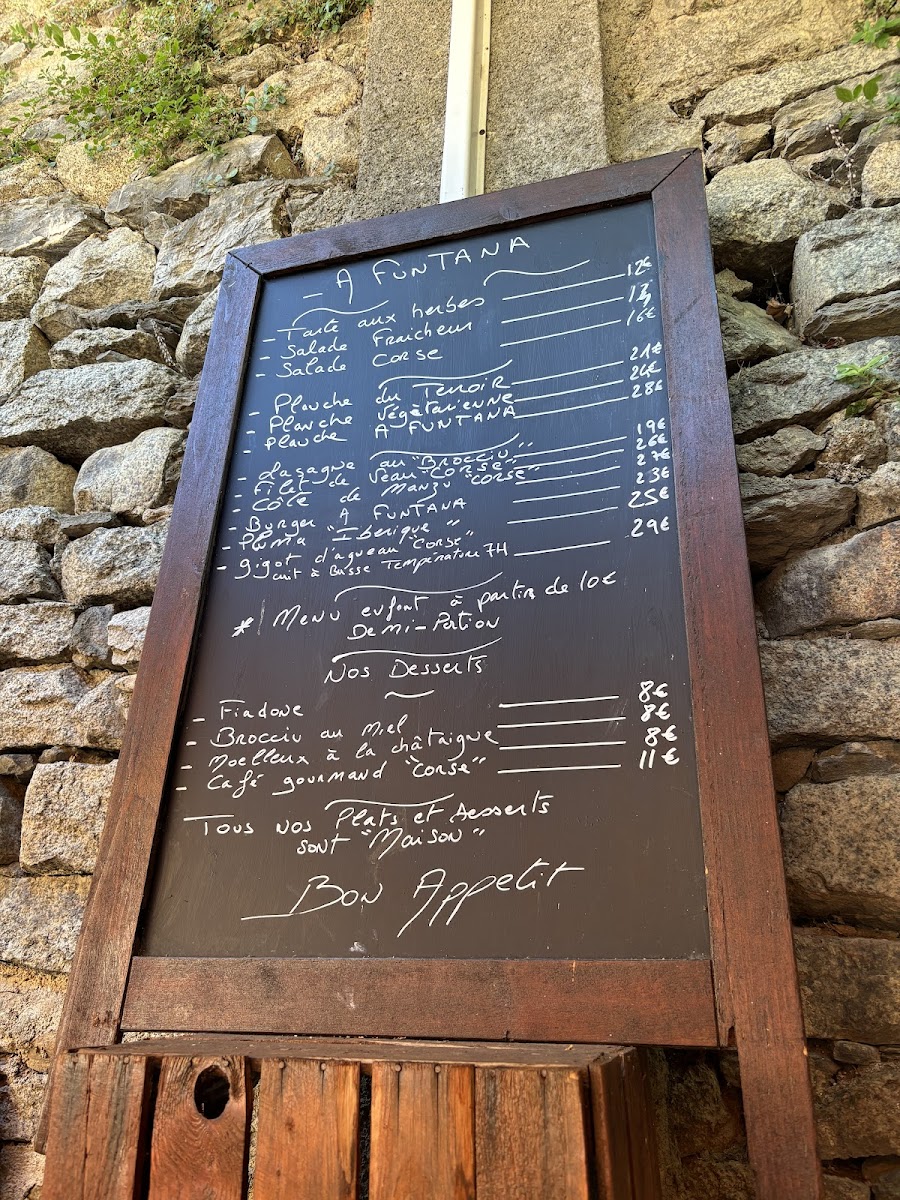 A FUNTANA
- Tarte aux herbes 12€
- Salade Fraicheur
- Salade Corse 16€
- Planche du Terroir 21€
- Planche végètarienne
- Planche A FUNTANA 28€
- Lasagne au "Brocciu" 19€
- Filet de Veau "CORSE" 26€
- Côte de Manzu "CORSE" 27€
- Burger A FUNTANA 23€
- Pluma "Iberique" 25€
- gigot d'agneau "Corse" 29€
cuit à Basse Température 7H
* Menu enfant à partir de 10€
Demi-Portion
Nos Desserts
- Fiadone 8€
- Brocciu au Miel 8€
- Moelleux à la châtaigne 8€
- Café gourmand "Corse" 11€
Tous nos Plats et desserts
sont "Maison"
Bon Appetit